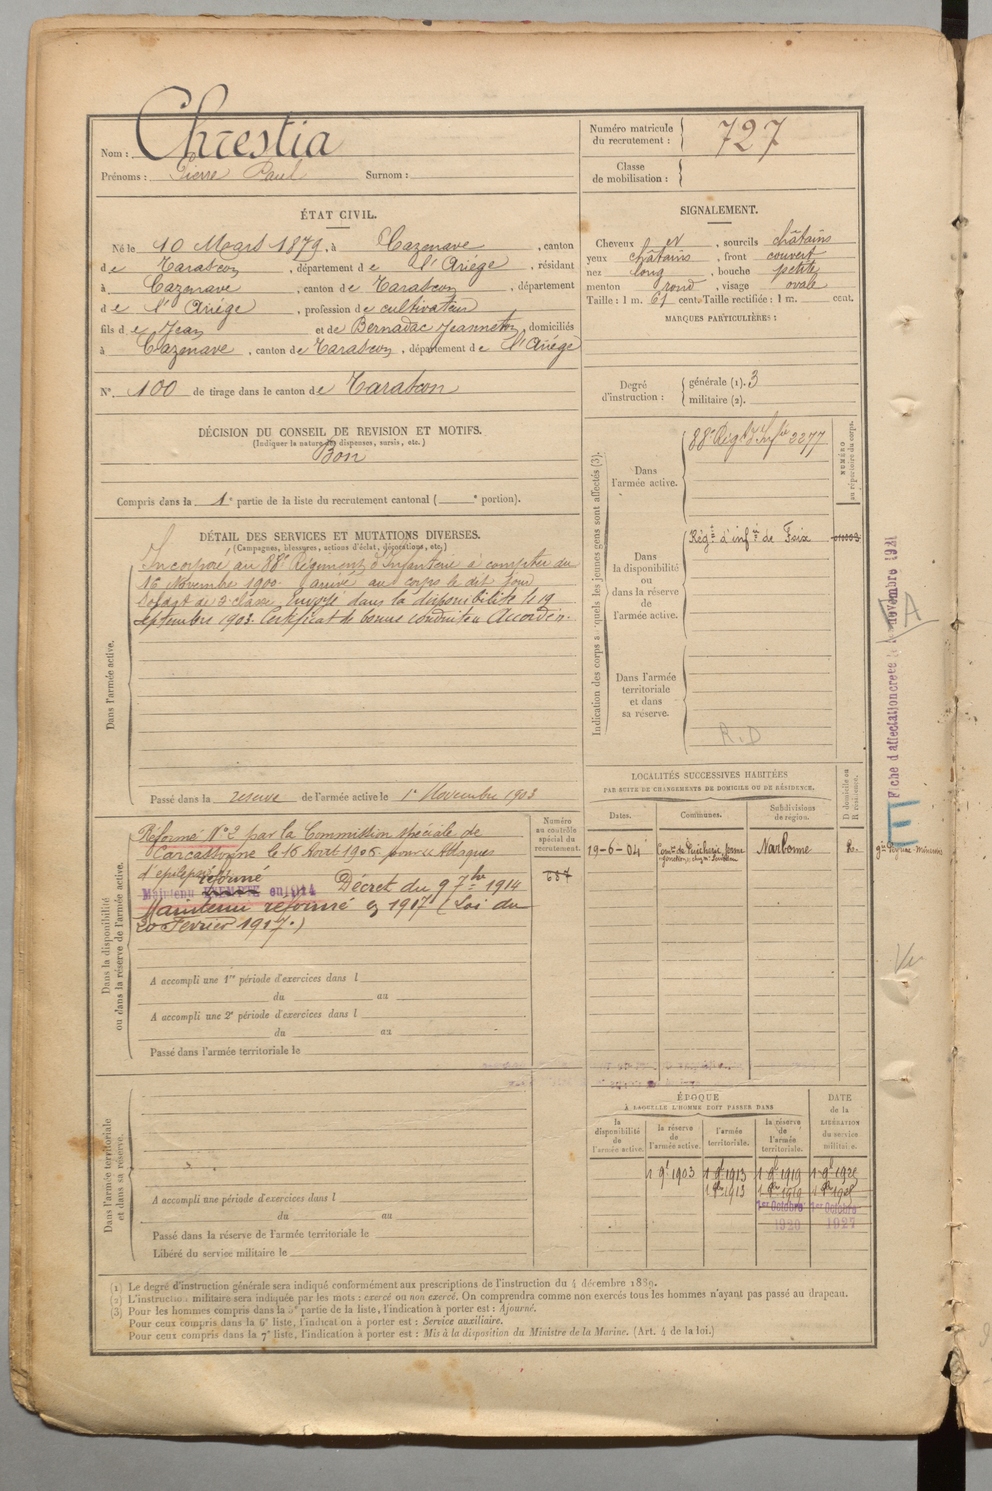 Nom : Chrestia
Prénoms : Pierre Paul Surnom :
Numéro matricule du recrutement : 727
Classe de mobilisation :
ÉTAT CIVIL.
Né le 10 Mars 1879, à Cazenave, canton
de Tarascon, département de l'Ariége, résidant
à Cazenave, canton de Tarascon, département
de l'Ariége, profession de cultivateur
fils de Jean et de Bernadac Jeanneton, domiciliés
à Cazenave, canton de Tarascon, département de l'Ariége
N° 100 de tirage dans le canton de Tarascon
SIGNALEMENT.
Cheveux et, sourcils châtains
yeux châtains, front couvert
nez long, bouche petite
menton rond, visage ovale
Taille : 1 m. 61 cent. Taille rectifiée : 1 m. cent.
MARQUES PARTICULIÈRES :
Degré d'instruction : générale (1). 3
militaire (2).
DÉCISION DU CONSEIL DE REVISION ET MOTIFS.
(Indiquer la nature des dispenses, sursis, etc.)
Bon
Compris dans la 1e partie de la liste du recrutement cantonal ( e portion).
DÉTAIL DES SERVICES ET MUTATIONS DIVERSES.
(Campagnes, blessures, actions d'éclat, décorations, etc.)
Dans l'armée active.
Incorporé au 88e Régiment d'Infanterie à compter du
16 Novembre 1900. arrivé au corps le dit jour
Soldat de 2e classe. Envoyé dans la disponibilité le 19
septembre 1903. Certificat de bonne conduite Accordé.
Passé dans la reserve de l'armée active le 1er Novembre 1903
Indication des corps auxquels les jeunes gens sont affectés (3).
NUMÉRO au répertoire du corps.
Dans l'armée active.
88e Régt d'Infie 2277
Dans la disponibilité ou dans la réserve de l'armée active.
Régt d'infie de Foix
Dans l'armée territoriale et dans sa réserve.
R.D
Fiche d'affectation créée le novembre 1921
A
E
Dans la disponibilité ou dans la réserve de l'armée active.
Réformé N° 2 par la Commission spéciale de
Carcassonne le 16 Août 1905 pour Attaques
d'épilepsie.
Maintenu réformé EXEMPTÉ en 1914 Décret du 9 7bre 1914
Maintenu réformé en 1917 (Loi du
20 Février 1917.)
Numéro au contrôle spécial du recrutement.
A accompli une 1re période d'exercices dans l
du au
A accompli une 2e période d'exercices dans l
du au
Passé dans l'armée territoriale le
LOCALITÉS SUCCESSIVES HABITÉES
PAR SUITE DE CHANGEMENTS DE DOMICILE OU DE RÉSIDENCE.
Dates. Communes. Subdivisions de région. D domicile ou R résidence.
19-6-04 Narbonne R.
Dans l'armée territoriale et dans sa réserve.
A accompli une période d'exercices dans l
du au
Passé dans la réserve de l'armée territoriale le
Libéré du service militaire le
ÉPOQUE
À LAQUELLE L'HOMME DOIT PASSER DANS
DATE de la LIBÉRATION du service militaire.
la disponibilité de l'armée active. la réserve de l'armée active. l'armée territoriale. la réserve de l'armée territoriale.
1 9bre 1903 1 9bre 1913 1 9bre 1919
1er Octobre 1920 1er Octobre 1927
(1) Le degré d'instruction générale sera indiqué conformément aux prescriptions de l'instruction du 4 décembre 1889.
(2) L'instruction militaire sera indiquée par les mots : exercé ou non exercé. On comprendra comme non exercés tous les hommes n'ayant pas passé au drapeau.
(3) Pour les hommes compris dans la 5e partie de la liste, l'indication à porter est : Ajourné.
Pour ceux compris dans la 6e liste, l'indication à porter est : Service auxiliaire.
Pour ceux compris dans la 7e liste, l'indication à porter est : Mis à la disposition du Ministre de la Marine. (Art. 4 de la loi.)